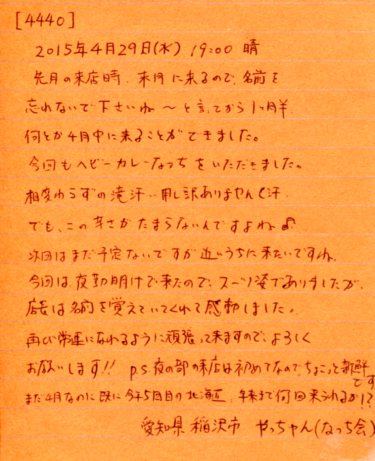 [4440]
2015年4月29日(水) 19:00 晴
先月の来店時、来月に来るので、名前を
忘れないで下さいね〜と言ってから1ヶ月半、
何とか4月中に来ることができました。
今回もヘビーカレーなっちをいただきました。
相変わらずの滝汗…申し訳ありません(汗
でも、この辛さがたまらないんですよね♪
次回はまだ予定ないですが近いうちに来たいですね。
今回は夜勤明けで来たので、スーツ姿でありましたが、
店長は名前を覚えていてくれて感動しました。
再び常連になれるように頑張って来ますので、よろしく
お願いします!! p.s.夜の部の来店は初めてなのでちょこっと新鮮
です
また4月なのに既に今年5回目の北海道、年末まで何回来られるか!?
愛知県稲沢市 やっちゃん(なっち会)